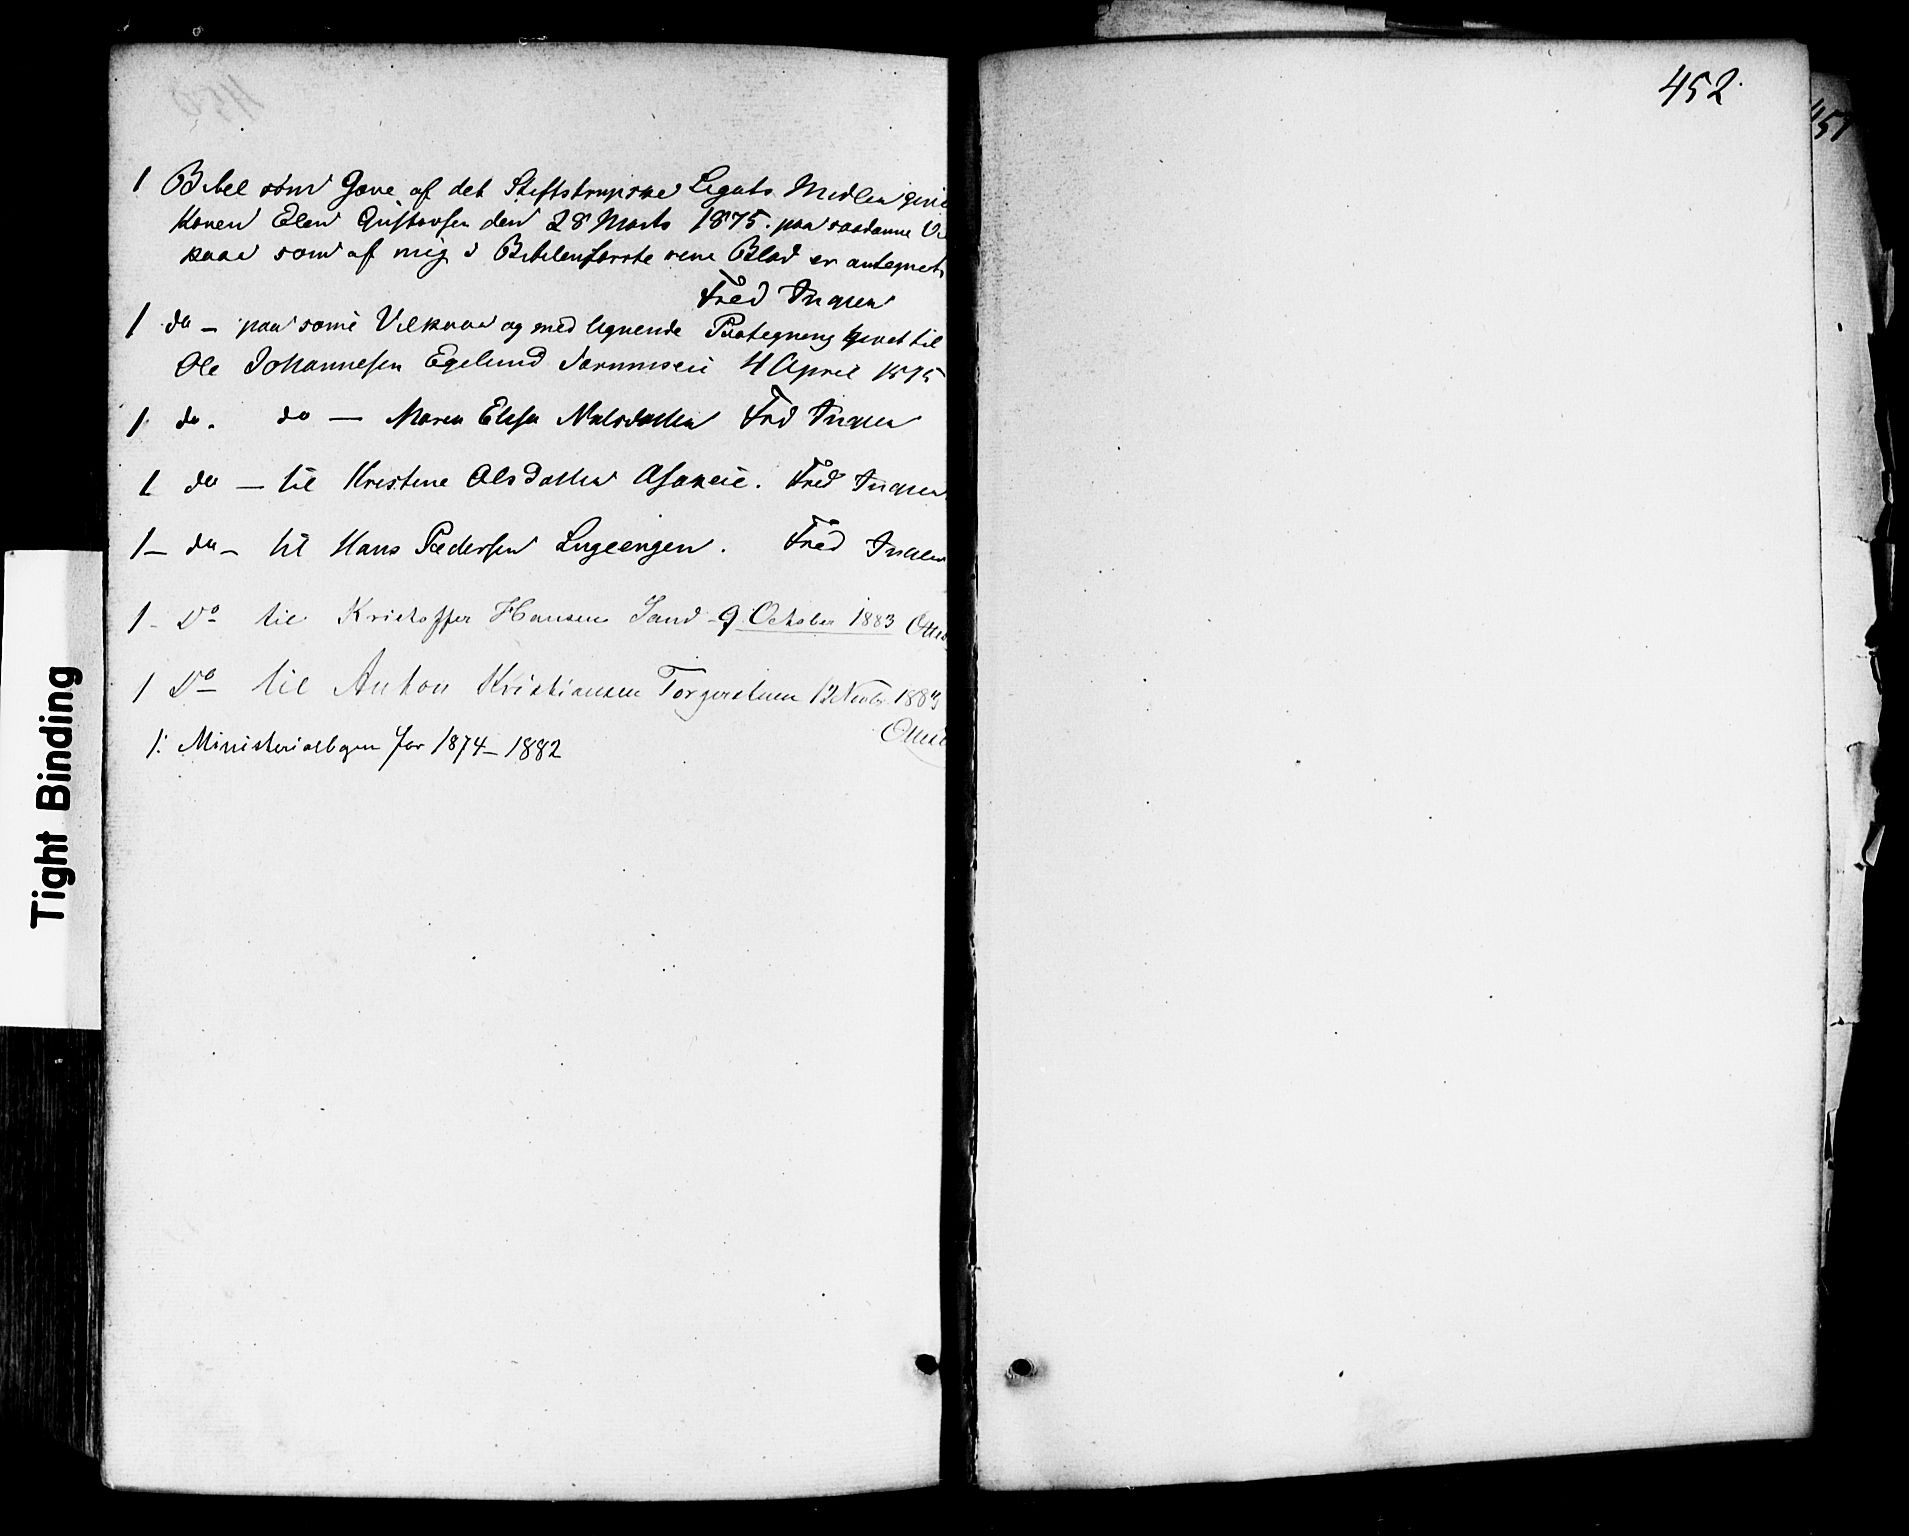 452
151
1 Bibel som Gave af det Stiftstrupske Legats Midler givet
Konen Elen Gustavsen den 28 Marts 1875. paa saadanne Vil
kaar som af mig i Bibelens første rene Blad er antegnet.
Fred Ingier
1 do – paa samme Vilkaar og med lignende Paategning givet til
Ole Johannesen Egelund 4 April 1875
1 do. do — Maren Elisa Nilsdatter Fred Ingier
1 do — til Kristine Olsdatter Fred Ingier
1 – do – til Hans Pedersen Lugeengen. Fred Ingier
1 – Do til Kristoffer Hansen Sand 9 October 1883
1 Do til Anton Kristiansen Torgerstuen 12 Novbr 1883
1. Ministerialbogen for 1874–1882
Tight Binding